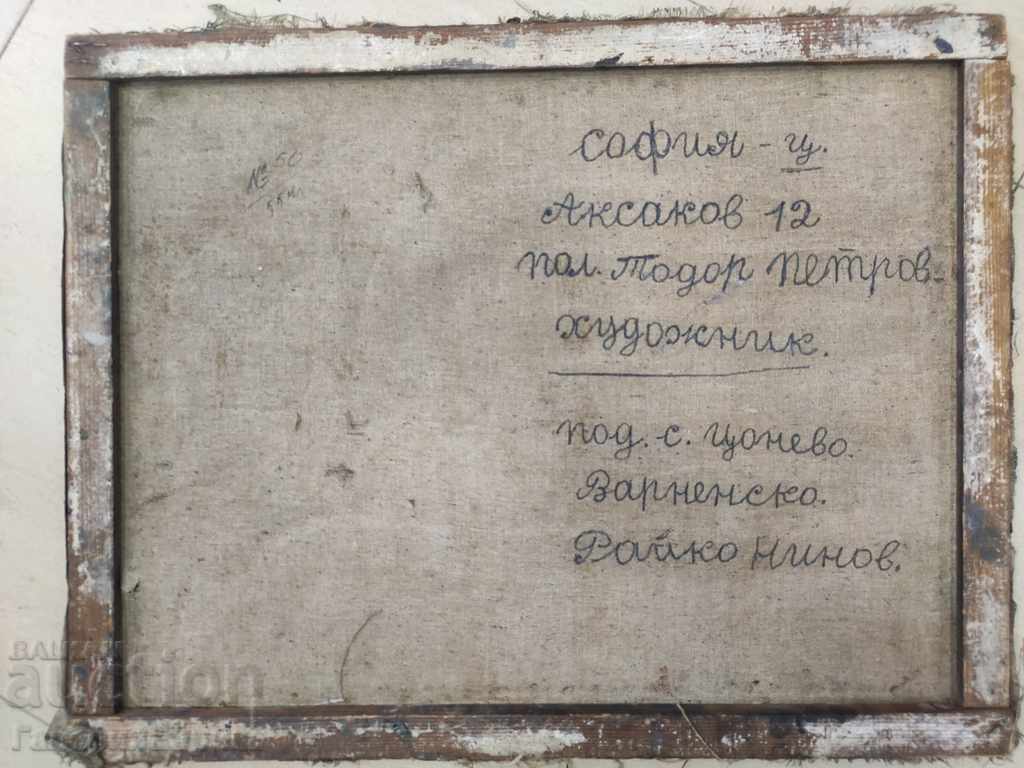 София - ц.
Аксаков 12
пол. Тодор Петров-
художник.
под. - с. Цонево.
Варненско.
Райко Нинов.
№ 50
auction